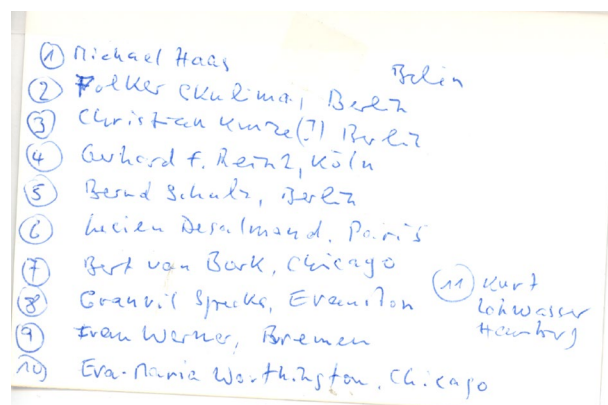 ① Michael Haas Berlin
② Volker Skulima, Berlin
③ Christian Kunze(?) Berlin
④ Gerhard F. Reinz, Köln
⑤ Bernd Schulz, Berlin
⑥ Lucien Desalmand, Paris
⑦ Bert van Bork, Chicago
⑧ Granvil Specks, Evanston
⑨ Werner, Bremen
⑩ Eva-Maria Worthington, Chicago
⑪ Kurt
Lohwasser
Hamburg